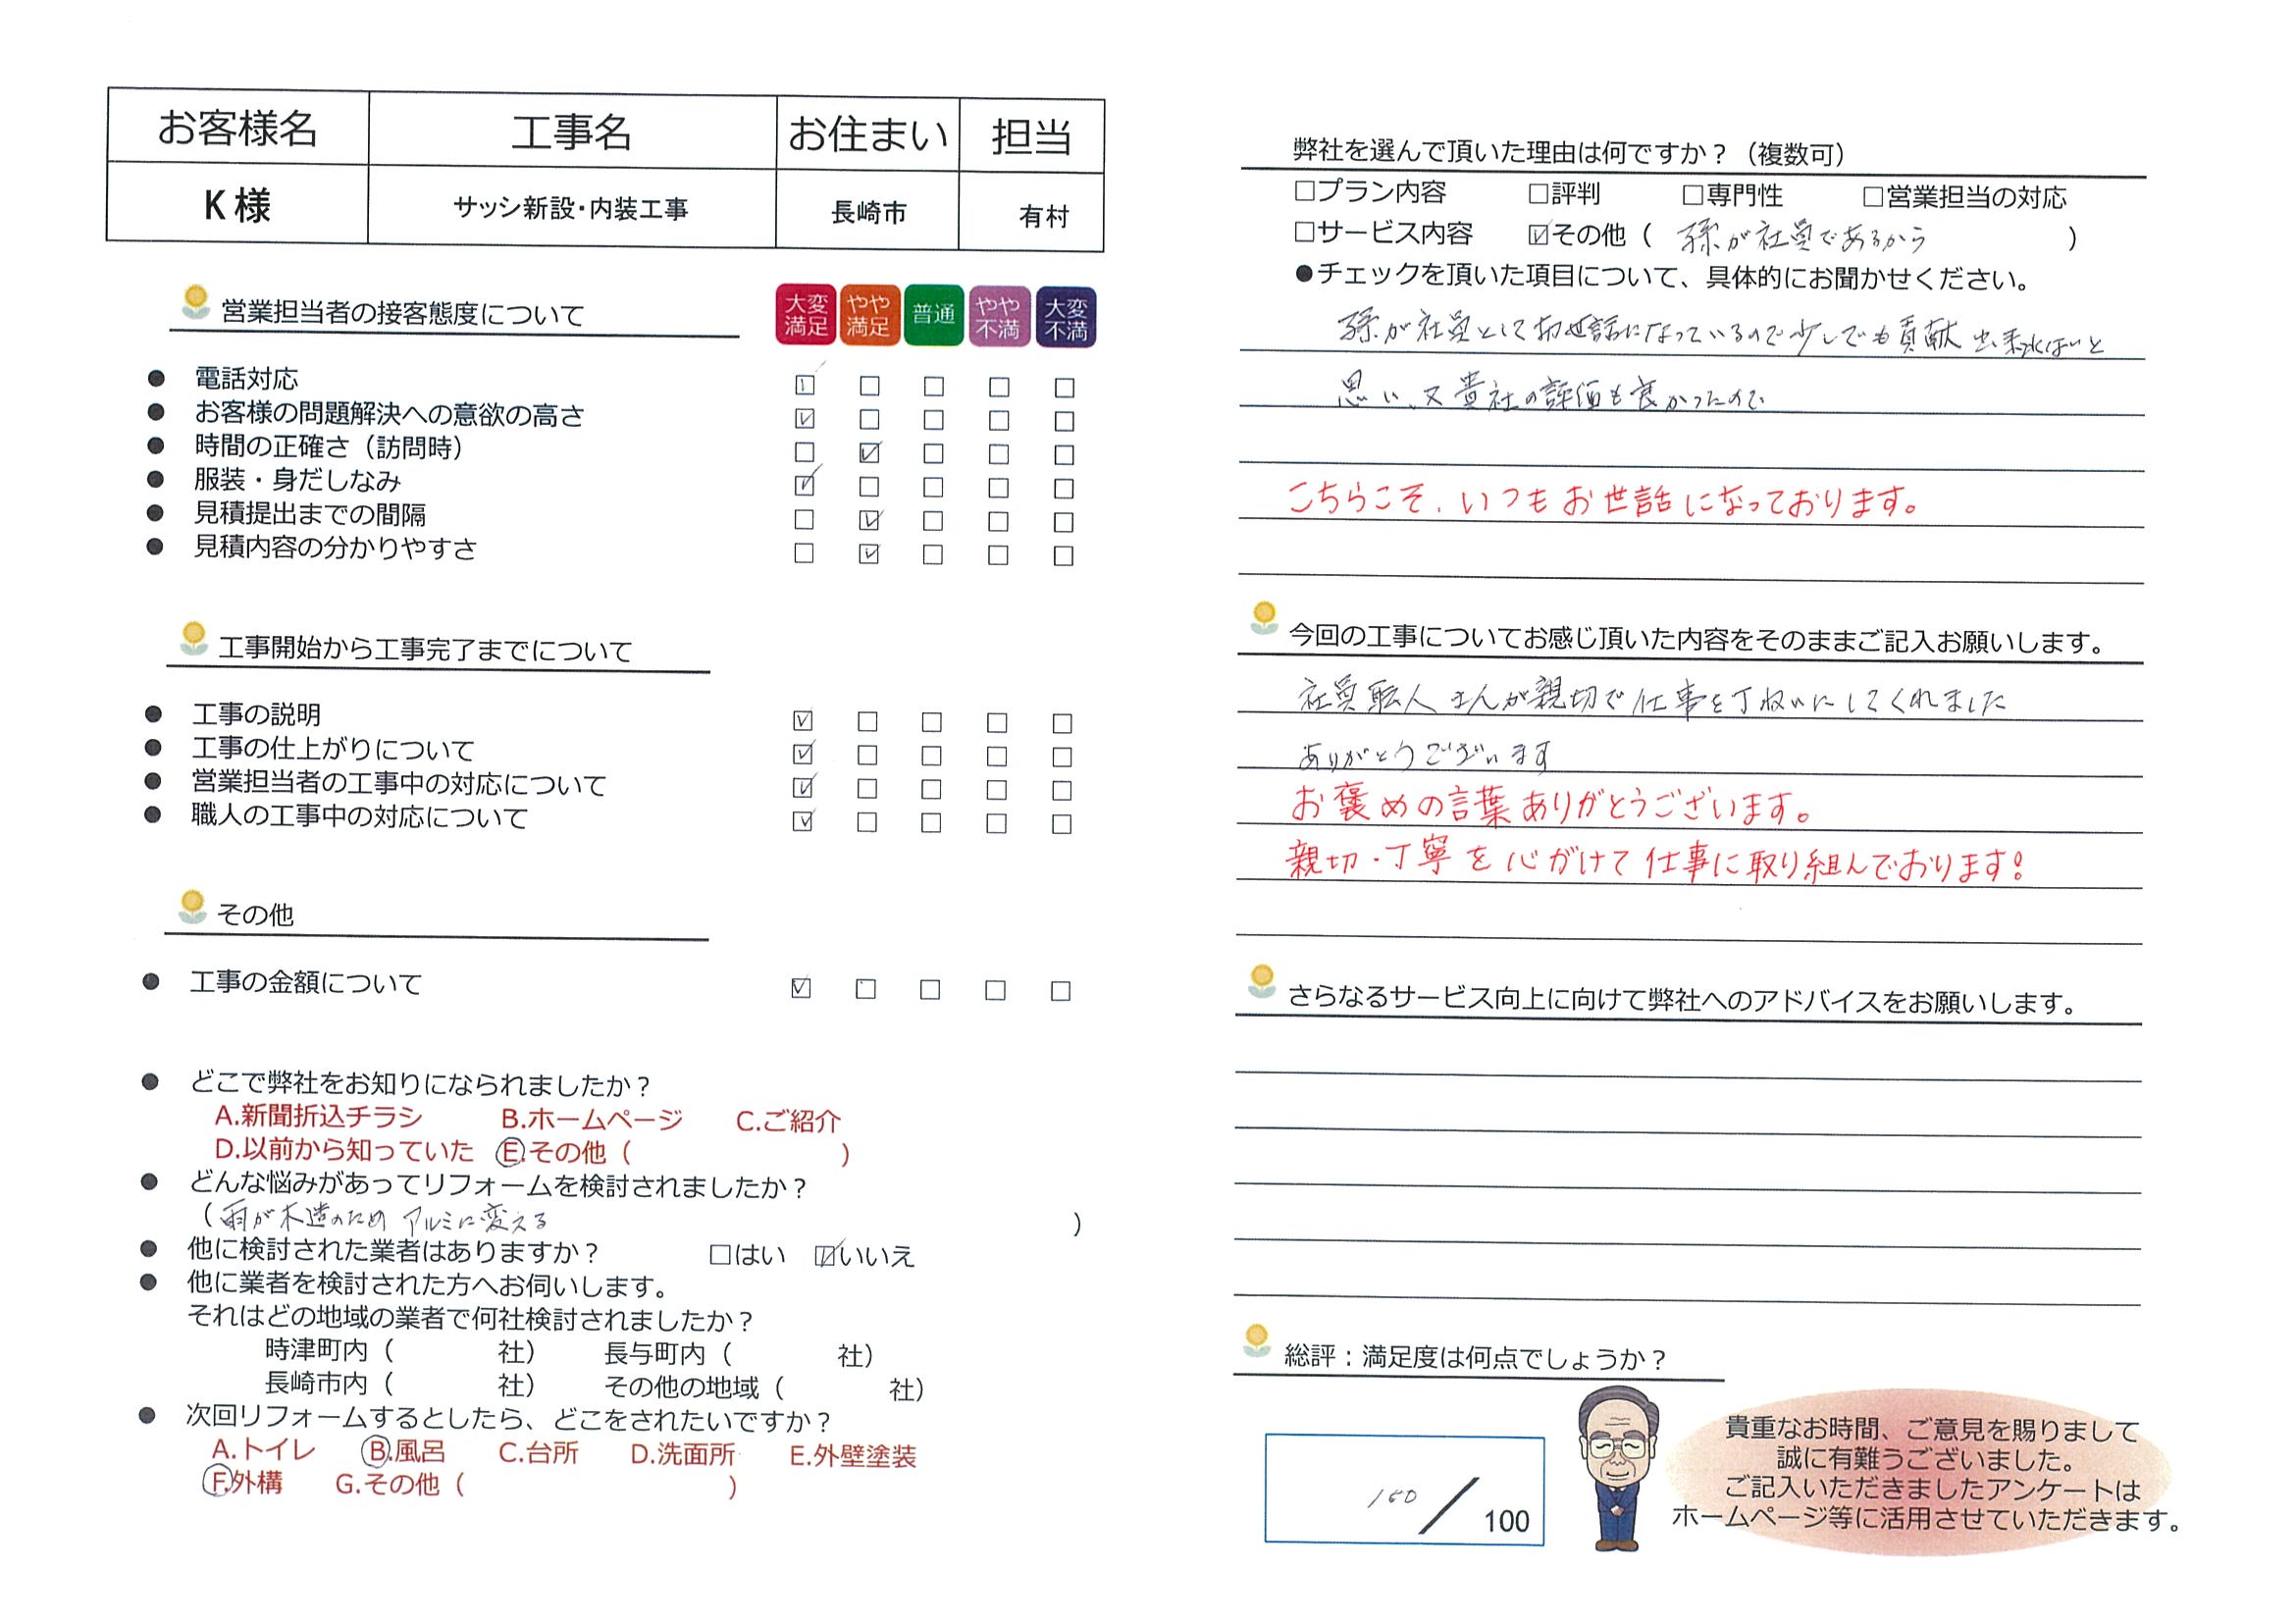 お客様名 工事名 お住まい 担当
K様 サッシ新設・内装工事 長崎市 有村
営業担当者の接客態度について
大変満足 やや満足 普通 やや不満 大変不満
● 電話対応 ☑ □ □ □ □
● お客様の問題解決への意欲の高さ ☑ □ □ □ □
● 時間の正確さ（訪問時） □ ☑ □ □ □
● 服装・身だしなみ ☑ □ □ □ □
● 見積提出までの間隔 □ ☑ □ □ □
● 見積内容の分かりやすさ □ ☑ □ □ □
工事開始から工事完了までについて
● 工事の説明 ☑ □ □ □ □
● 工事の仕上がりについて ☑ □ □ □ □
● 営業担当者の工事中の対応について ☑ □ □ □ □
● 職人の工事中の対応について ☑ □ □ □ □
その他
● 工事の金額について ☑ □ □ □ □
● どこで弊社をお知りになられましたか？
A.新聞折込チラシ B.ホームページ C.ご紹介
D.以前から知っていた E.その他（ ）
● どんな悩みがあってリフォームを検討されましたか？
（雨が木造のため アルミに変える ）
● 他に検討された業者はありますか？ □はい ☑いいえ
● 他に業者を検討された方へお伺いします。
それはどの地域の業者で何社検討されましたか？
時津町内（ 社） 長与町内（ 社）
長崎市内（ 社） その他の地域（ 社）
● 次回リフォームするとしたら、どこをされたいですか？
A.トイレ B.風呂 C.台所 D.洗面所 E.外壁塗装
F.外構 G.その他（ ）
弊社を選んで頂いた理由は何ですか？（複数可）
□プラン内容 □評判 □専門性 □営業担当の対応
□サービス内容 ☑その他（ 孫が社員であるから ）
●チェックを頂いた項目について、具体的にお聞かせください。
孫が社員としてお世話になっているので少しでも貢献出来ればと
思い、又貴社の評価も良かったので
こちらこそ、いつもお世話になっております。
今回の工事についてお感じ頂いた内容をそのままご記入お願いします。
社員職人さんが親切で仕事を丁ねいにしてくれました
ありがとうございます
お褒めの言葉ありがとうございます。
親切・丁寧を心がけて仕事に取り組んでおります!
さらなるサービス向上に向けて弊社へのアドバイスをお願いします。
総評：満足度は何点でしょうか？
100
貴重なお時間、ご意見を賜りまして
誠に有難うございました。
ご記入いただきましたアンケートは
ホームページ等に活用させていただきます。